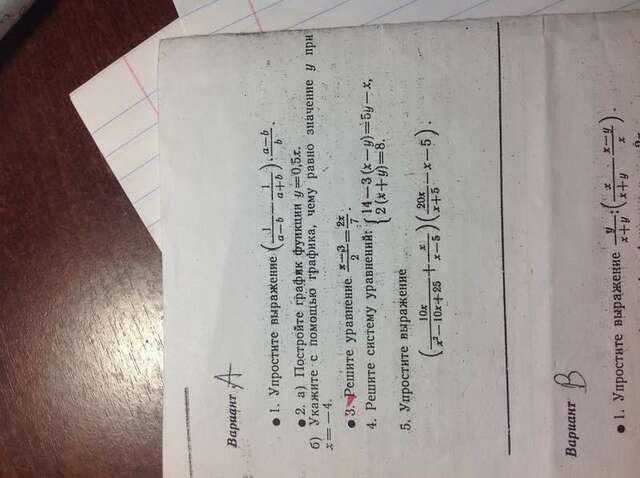 Вариант A
● 1. Упростите выражение (1/(a−b) − 1/(a+b)) · (a−b)/b.
● 2. а) Постройте график функции y=0,5x.
б) Укажите с помощью графика, чему равно значение y при
x=−4.
● 3. Решите уравнение (x−3)/2 = 2x/7.
4. Решите систему уравнений: { 14−3(x−y)=5y−x,
2(x+y)=8.
5. Упростите выражение
(10x/(x²−10x+25) + x/(x−5)) (20x/(x+5) −x−5).
Вариант B
● 1. Упростите выражение y/(x+y) : (x/(x+y) − (x−y)/x).